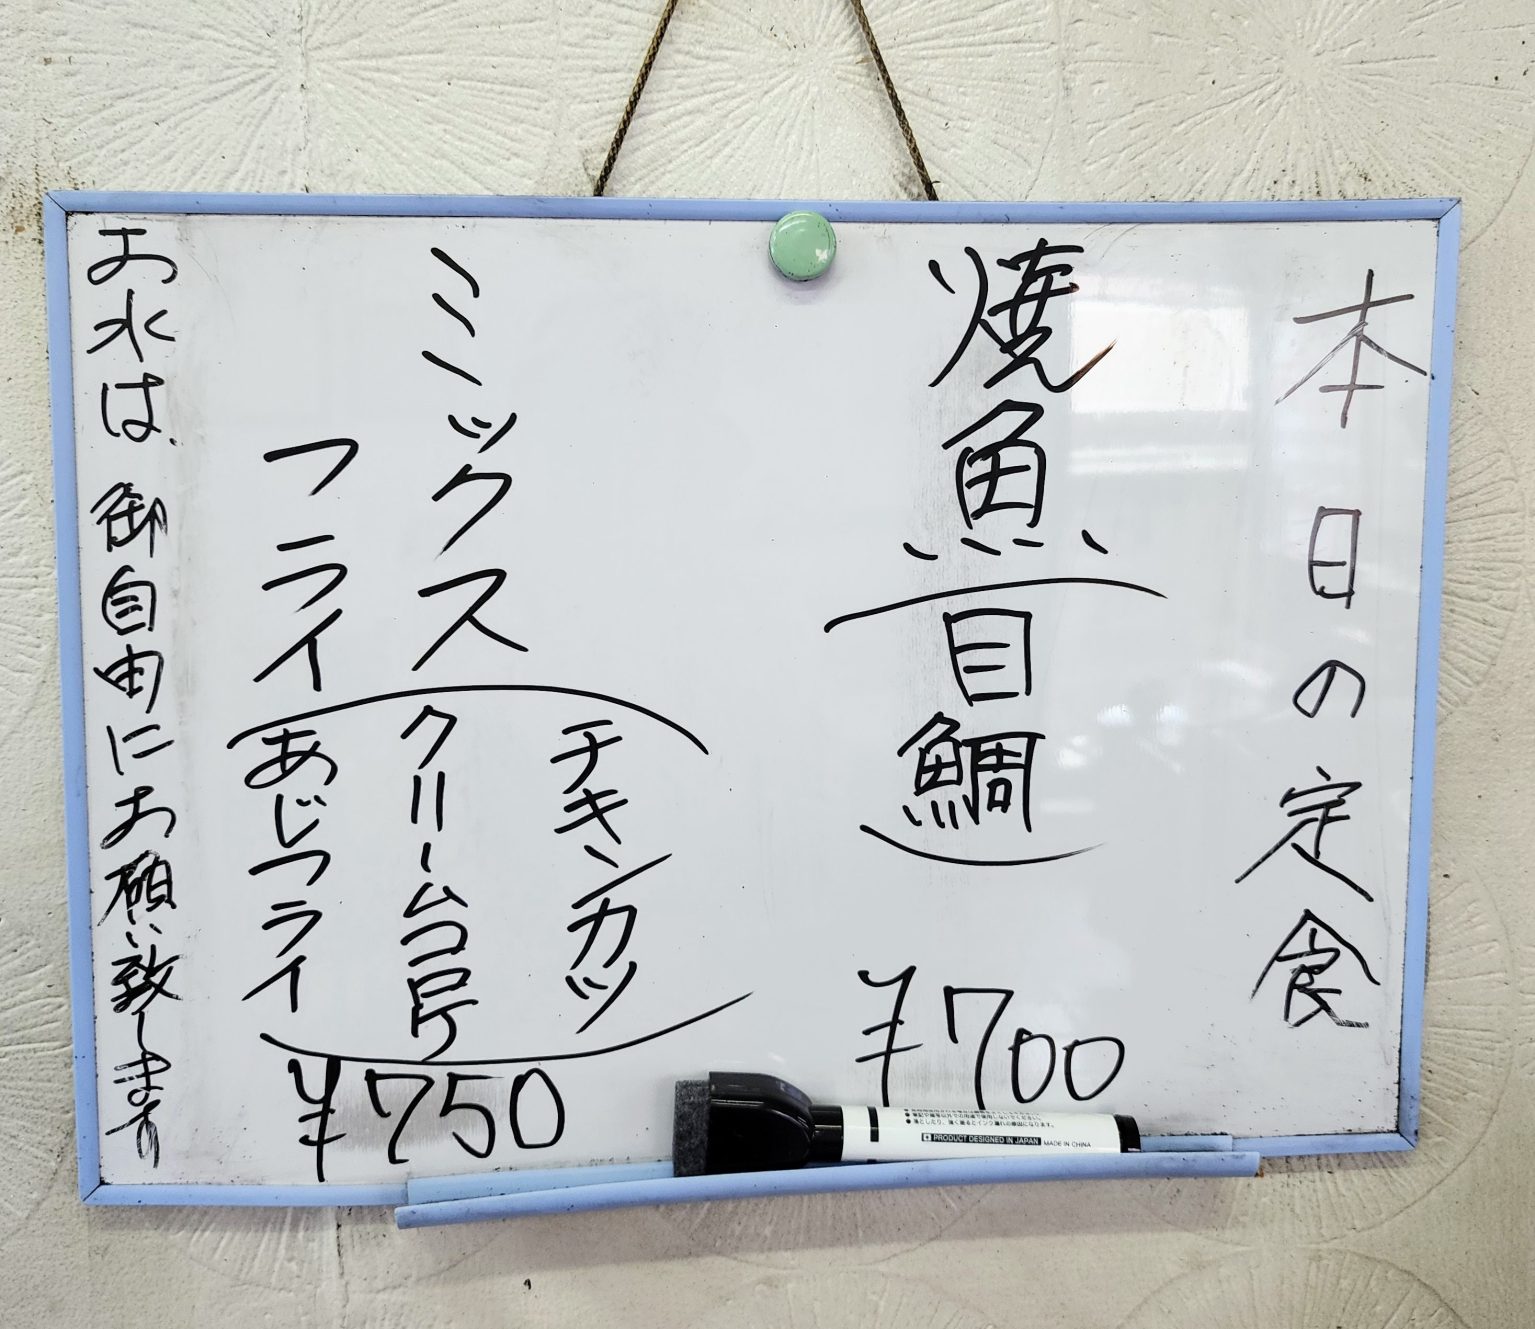 本日の定食
焼魚
(目鯛)
¥700
ミックス
フライ
(チキンカツ
クリームコロッケ
あじフライ)
¥750
お水は、御自由にお願い致します
PRODUCT DESIGNED IN JAPAN MADE IN CHINA